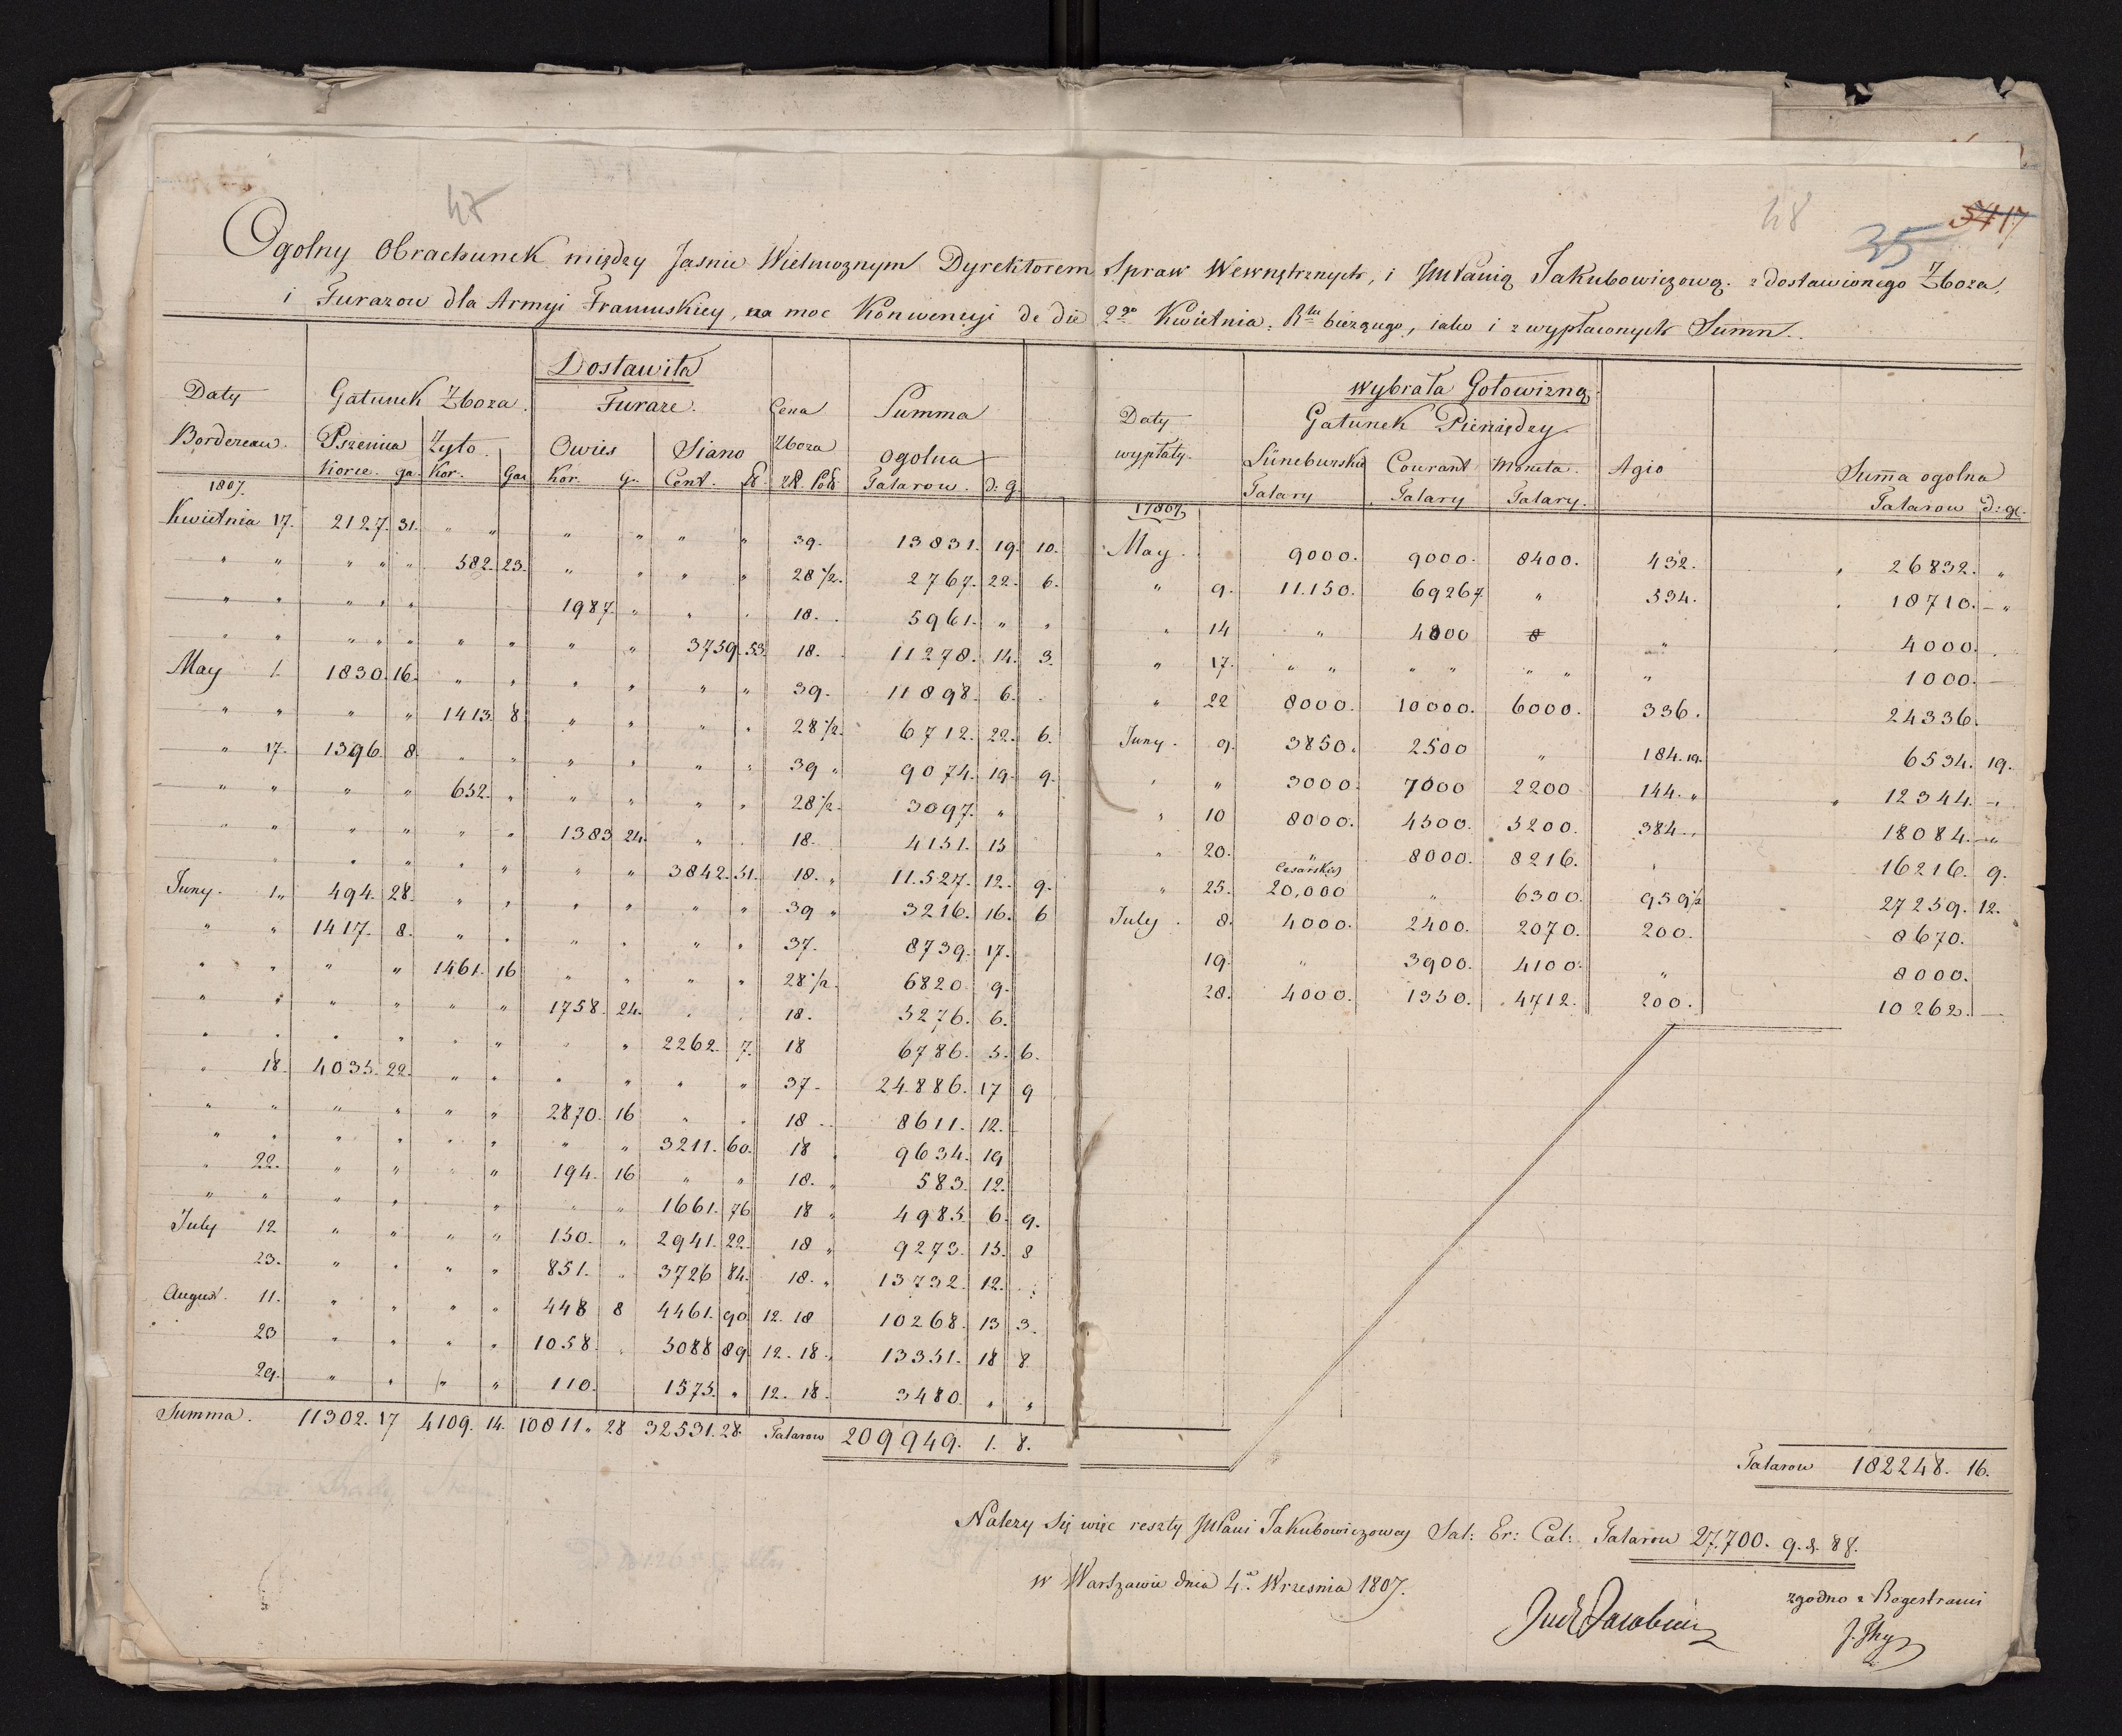 48
35
5417
Ogolny Obrachunek między Jaśnie Wielmoznym Dyrektorem Spraw Wewnętrznych, i JmPanią Jakubowiczową. z dostawionego Zboza,
i Furazow dla Armyi Francuskiey, na moc Konwencyi de die 2go Kwietnia, Rku bieżącego, iako i z wypłaconych Summ.
Dostawiła
Daty Bordereau. Gatunek Zboza. Furaze. Cena Zboza Summa ogolna
Pszenica Zyto. Owies Siano
Korce. ga. Kor. Gar. Kor. G. Cent. ℔. zł. Pol. Talarow. d: g
1807.
Kwietnia 17. 2127. 31. " " " " " " 39. 13831. 19. 10.
" " " " 582. 23. " " " " 28 1/2. 2767. 22. 6.
" " " " 1987. " " " 18. 5961. " "
" " " " " " " " 3759. 53. 18. 11278. 14. 3.
May 1. 1830. 16. " " " " " " 39. 11898. 6.
" " " " 1413. 8 " " " " 28 1/2. 6712. 22. 6.
" 17. 1396. 8. " " " " " " 39 " 9074. 19. 9.
" " " " 652. " " " " " 28 1/2. 3097. "
" " " " " " 1383 24. " " 18. 4151. 15
" " " " " " " 3842. 51. 18. " 11.527. 12. 9.
Juny. 1. " 494. 28. " " " " " " 39 " 3216. 16. 6
" " 1417. 8. " " " " " " 37. 8739. 17.
" " " " 1461. 16 " " " " 28 1/2. 6820. 9.
" " " " " " 1758. 24. " " 18. 5276. 6.
" " " " " " " " 2262. 7. 18 6786. 5. 6.
" 18. 4035. 22. " " " " " " 37. 24.886. 17 9
" " " " " " 2870. 16 " " 18 8611. 12.
" " " " " " " " 3211. 60. 18 9634. 19
" 22. " " " " 194. 16 " " 18. " 583. 12.
" " " " " " " 1661. 76 18 " 4985. 6. 9.
July 12 " " " " 150. " 2941. 22. 18 " 9273. 15. 8
23. " " " " 851. " 3726 84. 18. " 13732. 12.
August. 11. " " " " 448 8 4461. 90. 12. 18 10268. 13 3.
23 " " " " 1058. " 5088 89. 12. 18. 13351. 18 8
29. " " " " 110. 1575. " 12. 18. 3480. " "
Summa. 11302. 17 4109. 14. 10811. 28 32531. 28. Talarow 209949. 1. 8.
wybrała Gotowizną.
Daty wypłaty. Gatunek Pieniędzy. Agio Sum̄a ogolna
Lüneburskie Talary Courant Talary Moneta. Talary. Talarow d: gr.
1807
May. 9000. 9000. 8400. 432. 26832. "
" 9. 11.150. 69267 " 534. 18710. "
" 14 " 4000 " 4000.
" 17. " " " " " " " 1000.
" 22 8000. 10000. 6000. 336. 24336.
Juny. 9. 3850. 2500 " 184. 19. 6534. 19.
" " 3000. 7000 2200 144. " 12344.
" 10 8000. 4500. 5200. 384. 18084.
" 20. " 8000. 8216. " 16216. 9.
Cesarskie
" 25. 20,000 " 6300. 959 1/2 27259. 12.
July. 8. 4000. 2400. 2070. 200. 8670.
19. " 3900. 4100. " 8000.
28. 4000. 1350. 4712. 200. 10262.
Talarow 182248. 16.
Nalezy się więc reszty JmPani Jakubowiczowey Sal: Er: Cal: Talarow 27,700. 9. d. 88.
w Warszawie dnia 4. Wrzesnia 1807.
zgodno z Regestrami